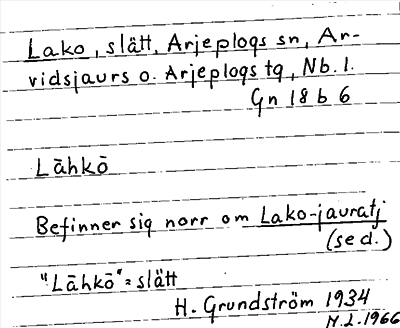 Lako, slätt, Arjeplogs sn, Ar-
vidsjaurs o. Arjeplogs tg, Nb. l.
Gn 18 b 6
Lāhkō
Befinner sig norr om Lako-jauratj
(se d.)
"Lāhkō" = slätt
H. Grundström 1934
M.L. 1966